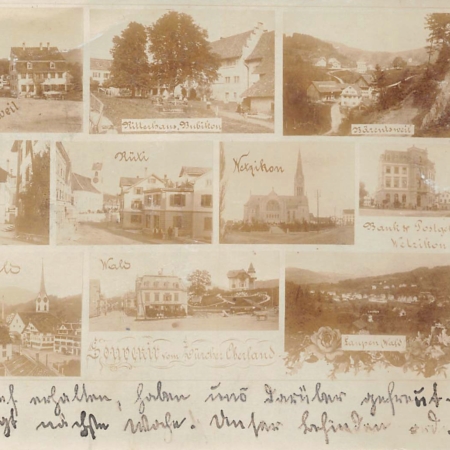 weil
Ritterhaus, Bubikon
Bäretsweil
Rüti
Wetzikon
Bank & Postge
Wetzikon
ld
Wald
Laupen, Wald
Souvenir vom Zürcher Oberland
erhalten, haben uns darüber gefreut.
nächste Woche. Unser befinden